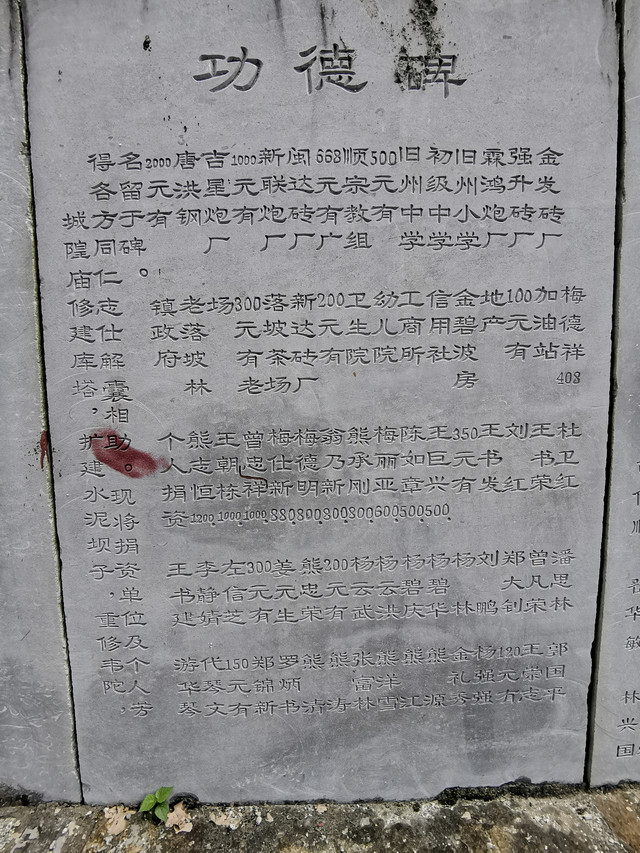 功德碑
城隍庙修建库塔，扩建水泥坝子，重修韦陀，
得各方同仁志仕解囊相助。现将捐资单位及个人芳
名留于碑。
2000元有
唐洪钢
吉星炮厂
1000元有
新联炮厂
闽达砖厂
668元有广
顺宗教组
500元有
旧州中学
初级中学
旧州小学
霖鸿炮厂
强升砖厂
金发砖厂
镇政府
老落坡林
场
300元有老
落坡茶场
新达砖厂
200元有
卫生院
幼儿院
工商所
信用社
金碧波房
地产
100元有
加油站
梅德祥408
个人捐资
熊志恒1200
王朝栋1000
曾忠祥1000
梅仕新880
梅德明800
翁乃新800
熊承刚800
梅丽亚600
陈如章500
王巨兴500
350元有
王书发
刘红
王书荣
杜卫红
王书建
李静婧
左信芝
300元有
姜元生
熊忠荣
200元有
杨云武
杨云洪
杨碧庆
杨碧华
杨林
刘鹏
郑大钊
曾凡荣
潘思林
游华琴
代琴文
150元有
郑锦新
罗炳书
熊清
熊涛
张富林
熊洋雪
熊江
熊源
金礼秀
杨强强
120元有
王崇志
郭国平